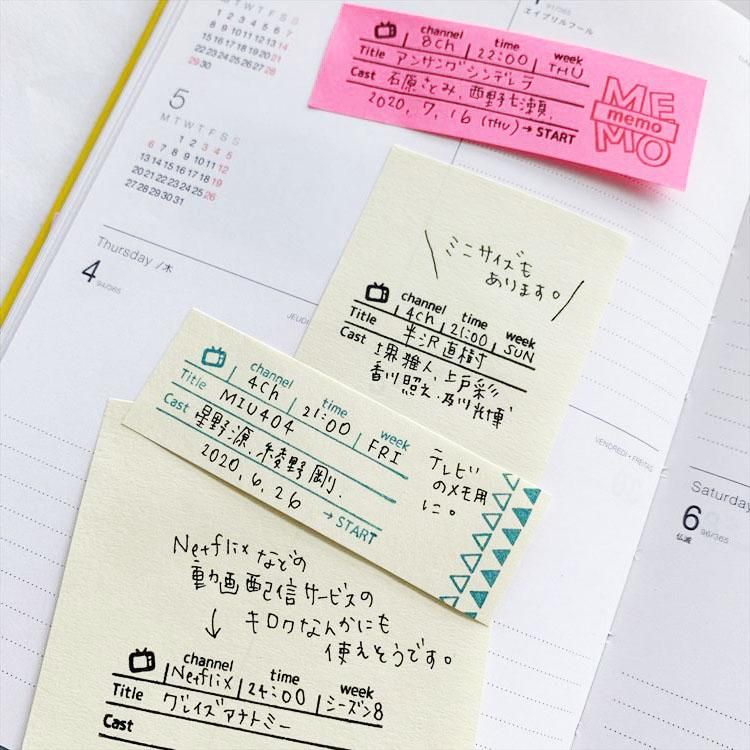 エイプリルフール
5
M T W T F S S
1 2 3 4 5
6 7 8 9 10 11 12
13 14 15 16 17 18 19
20 21 22 23 24 25 26
27 28 29 30 31
channel time week
8ch 22:00 THU
Title アンサングシンデレラ
Cast 石原さとみ、西野七瀬、
2020, 7, 16 (THU) → START
MEMO
memo
Thursday /木
4
94/365
JEUDI
ミニサイズも
あります。
channel time week
4ch 21:00 SUN
Title 半沢直樹
Cast 堺雅人、上戸彩
香川照之、及川光博
channel time week
4ch 21:00 FRI
Title MIU404
Cast 星野源、綾野剛、
2020, 6, 26
→ START
テレビ
のメモ用
に。
VENDREDI・FREITAG
Saturday
6
96/365
仏滅
Netflixなどの
動画配信サービスの
キロクなんかにも
使えそうです。
↓
channel time week
Netflix 24:00 シーズン8
Title グレイズアナトミー
Cast